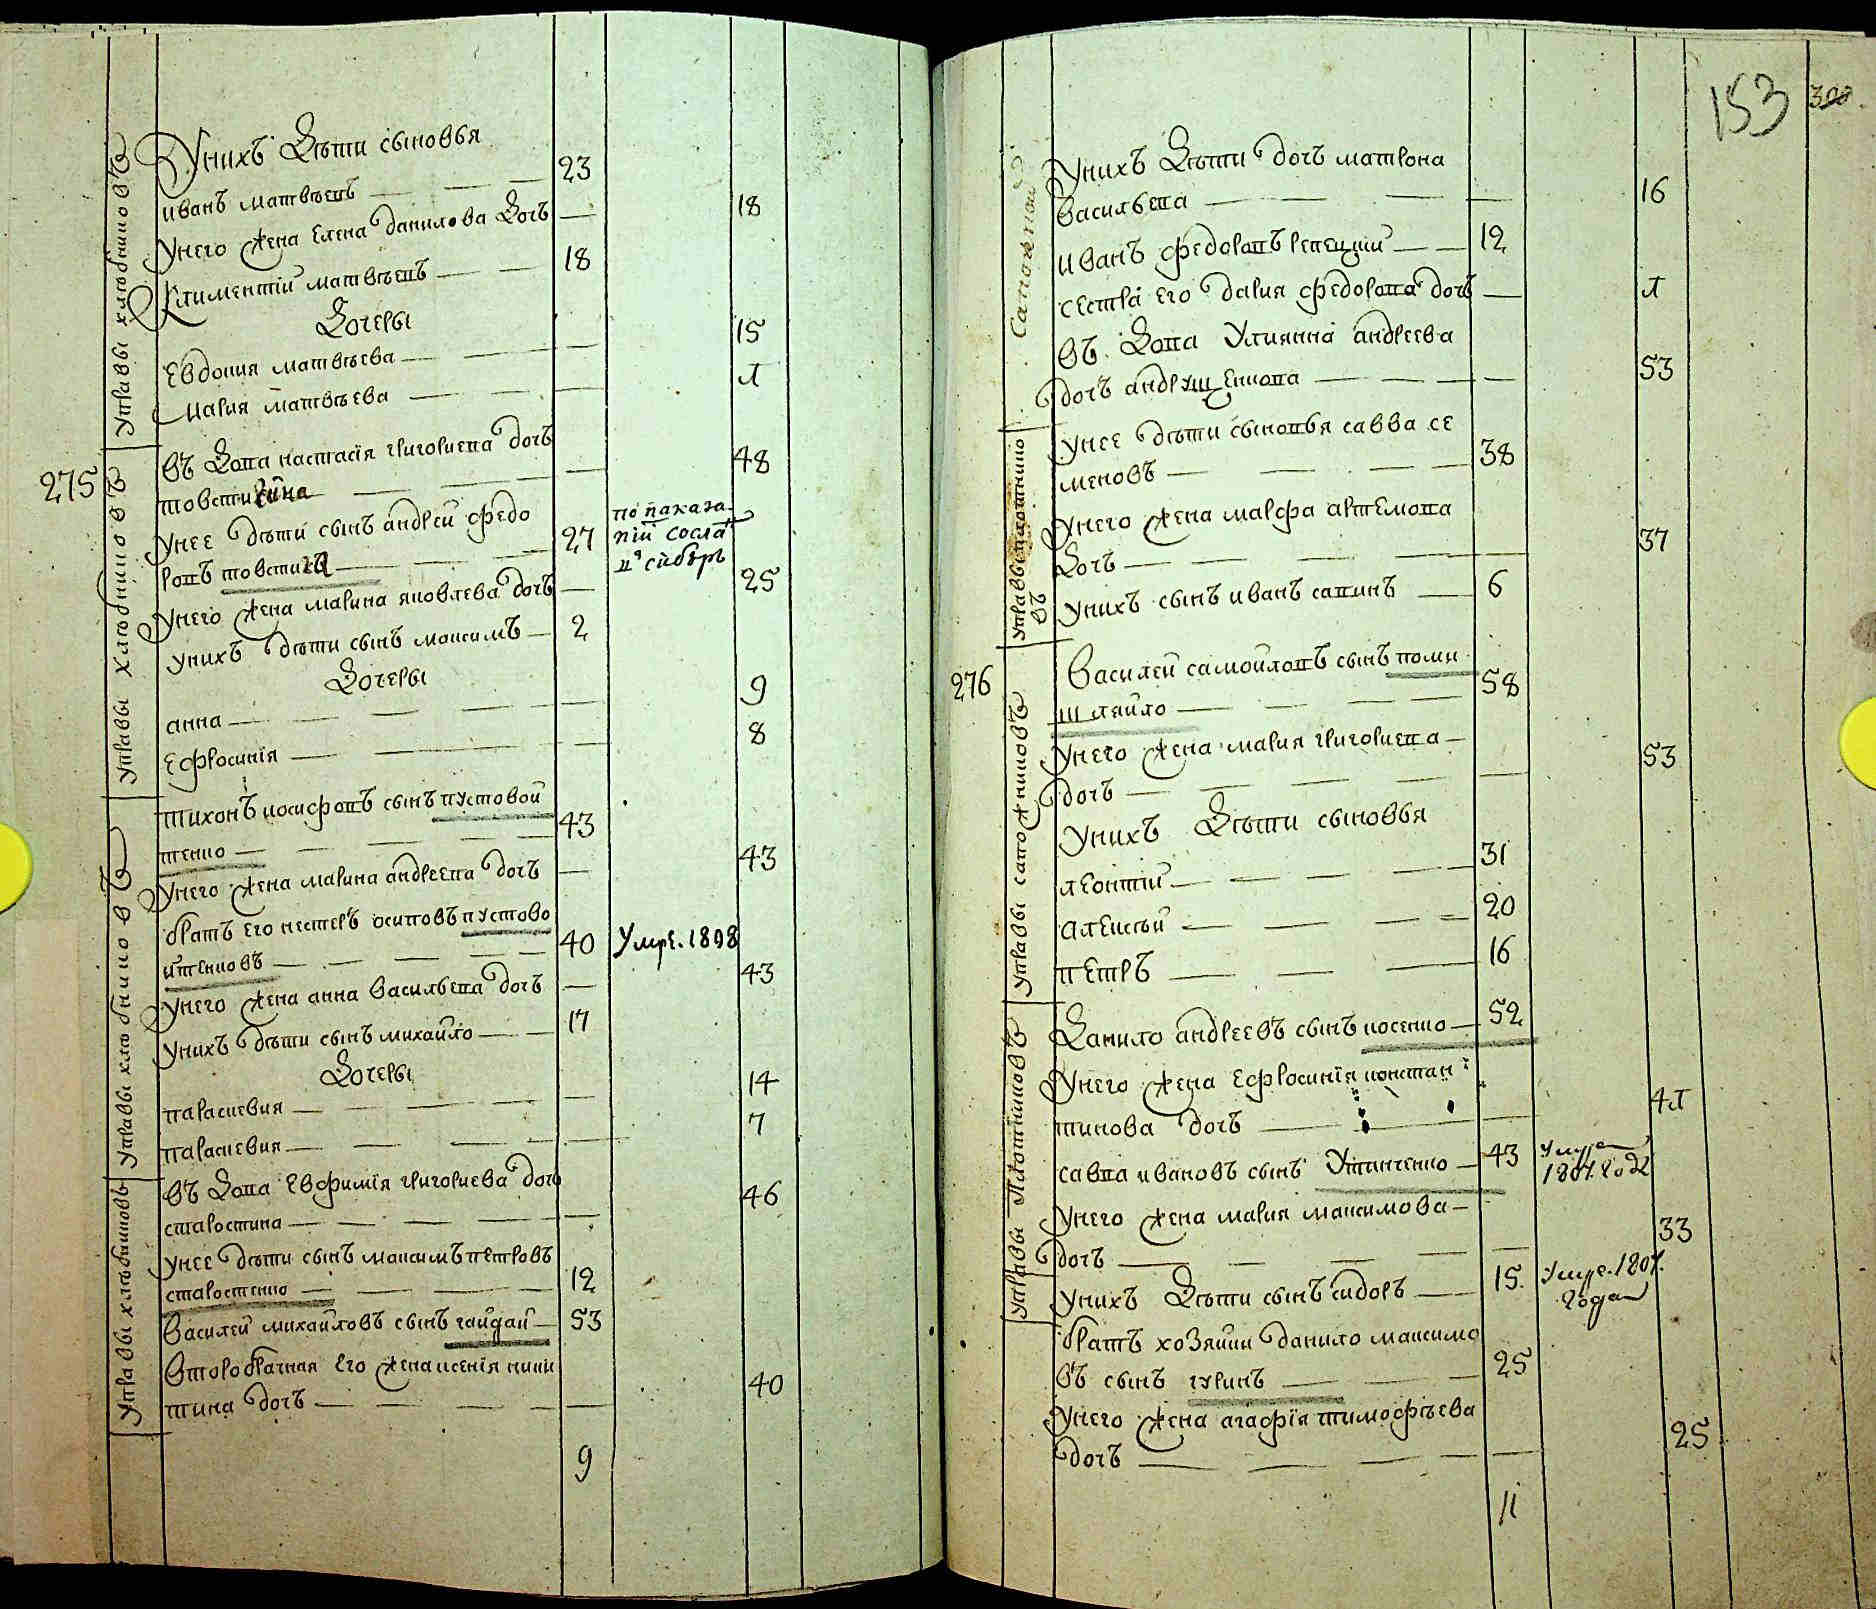 Управы хлѣбниковъ
Унихъ Дѣти сыновья
иванъ матвѣевъ — 23
Унего жена Елена данилова Дочь — 18
Климентій матвѣевъ — 18
Дочеры
Евдокия матвѣева — 15
Мария матвѣева — Л
Управы хлѣбниковъ
275
въ Дова настасія григориева дочь
товстикина — 48
Унее дѣти сынъ андрей федо
ровъ товстикъ — 27
по наказа
нїи сосла
въ сибѣрь
Унего жена марина яковлева дочь — 25
Унихъ дѣти сынъ максимъ — 2
Дочеры
анна — 9
Ефросинїя — 8
Управы хлѣбниковъ
тихонъ иосифовъ сынъ пустовой
тенко — 43
Унего жена марина андреева дочь — 43
братъ его нестеръ осиповъ пустово
йтенковъ — 40 Умре. 1808
Унего жена анна васильева дочь — 43
Унихъ дѣти сынъ михайло — 17
Дочеры
параскевия — 14
параскевия — 7
Управы хлѣбниковъ
въ Дова Евфимїя григориева дочь
старостина — 46
Унее дѣти сынъ максимъ петровъ
старостенко — 12
Василей михайловъ сынъ гайдай — 53
второбрачная его жена ксенія ники
тина дочь — 40
9
153
300.
Сапожников
Унихъ Дѣти дочь матрона
васильева — 16
иванъ федоровъ репецкий — 12
сестра его дария федорова дочь — Л
въ Дова Улиянна андреева
дочь андрущенкова — 53
Управы плотнико
въ
Унее дѣти сыновья савва се
меновъ — 38
Унего жена марфа артемова
Дочь — 37
Унихъ сынъ иванъ савинъ — 6
Управы сапожниковъ
276
Василей самойловъ сынъ поми
шляйло — 58
Унего жена мария григориева —
дочь — 53
Унихъ Дѣти сыновья
леонтий — 31
алексѣй — 20
петръ — 16
Управы Плотниковъ
Данило андреевъ сынъ косенко — 52
Унего жена Ефросинїя констан
тинова дочь — 4Л
савва ивановъ сынъ Утинченко — 43
Умре
1807. годѣ
Унего жена мария максимова —
дочь — 33
Унихъ Дѣти сынъ сидоръ — 15.
Умре. 1807.
года
братъ хозяйки данило максимо
въ сынъ гуринъ — 25
Унего жена агафїя тимофѣева
дочь — 25
11